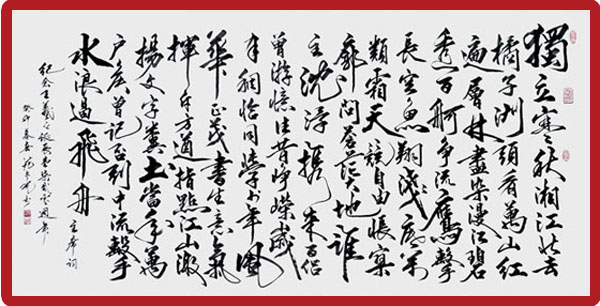 獨立寒秋湘江北去
橘子洲頭看萬山紅
遍層林盡染漫江碧
透百舸争流鷹擊
長空魚翔淺底萬
類霜天競自由悵寥
廓問蒼茫大地誰
主沈浮携來百侣
曾游憶往昔崢嶸歲
月稠恰同學少年風
華正茂書生意氣
揮斥方遒指點江山激
揚文字糞土當年萬
户侯曾記否到中流擊
水浪遏飛舟 主席詞
纪念
癸卯